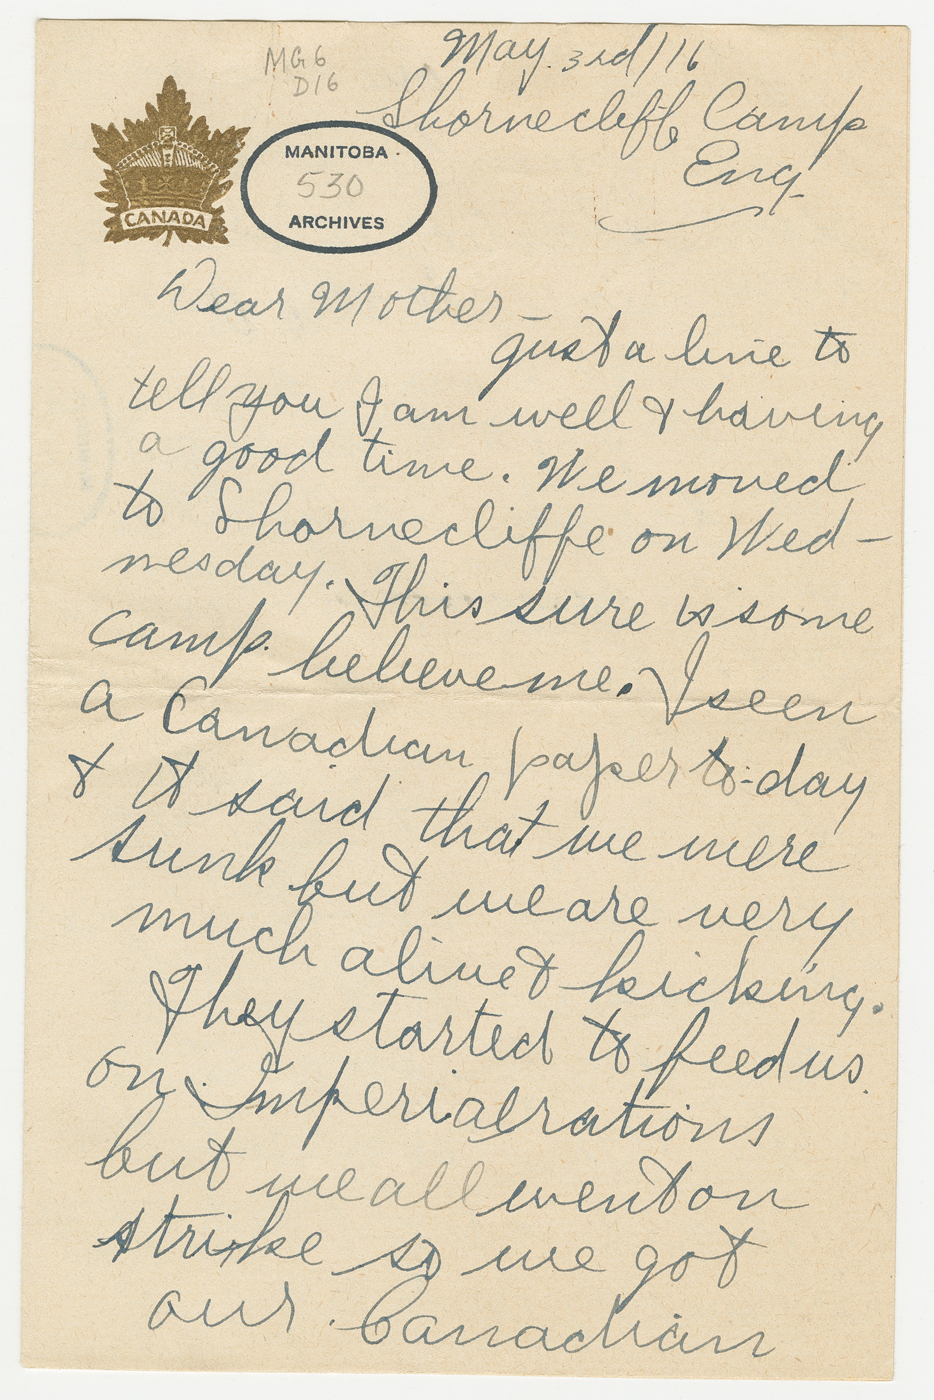 May 3rd/16
MG6
D16
Shornecliff Camp
Eng
CANADA
MANITOBA
530
ARCHIVES
Dear Mother –
gust a line to
tell you I am well & having
a good time. We moved
to Shornecliffe on Wed-
nesday. This sure is some
camp. believe me. I seen
a Canadian paper to-day
& it said that we were
sunk but we are very
much alive & kicking.
They started to feed us
on Imperial rations
but we all went on
strike so we got
our Canadian